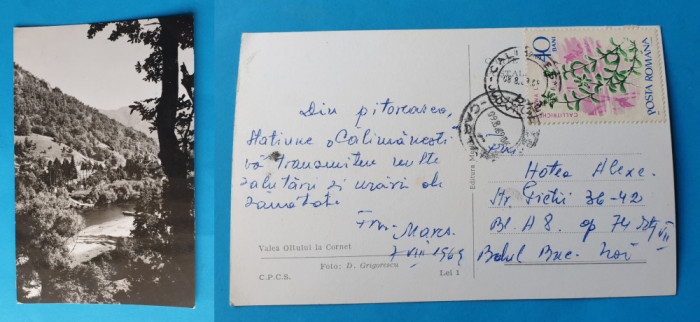 Din pitoreasca
Statiune Calimănesti
vă transmitem multe
salutări si urări de
sănatate
Fam. Mares
7 VIII 1969
Valea Oltului la Cornet
Foto: D. Grigorescu
C.P.C.S. Lei 1
Editura
40
BANI
POSTA ROMANA
CALLITRICHE
Fam
Hotea Alexe.
Str. 36-42
Bl. A8. ap 74
Bdul Buc. Noi